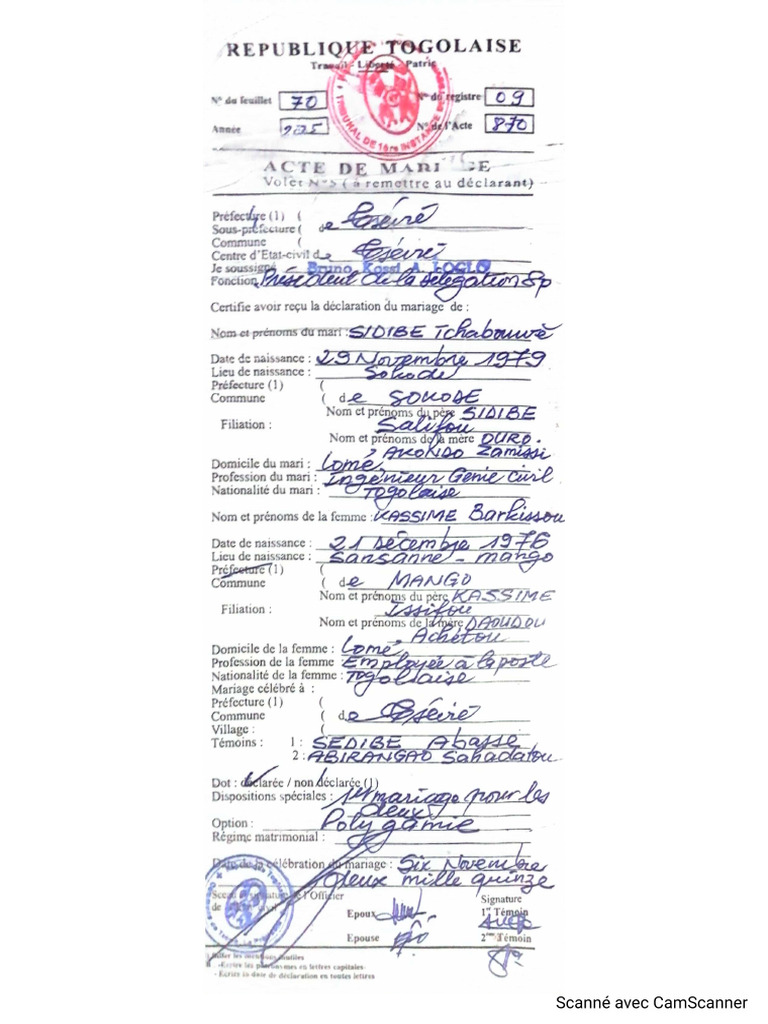 REPUBLIQUE TOGOLAISE
Travail - Liberté - Patrie
N° du feuillet 70 N° du registre 09
Année N° de l'Acte 870
TRIBUNAL DE 1ère INSTANCE
ACTE DE MARIAGE
Volet N°5 (à remettre au déclarant)
Préfecture (1) (
Sous-préfecture ( de Tsévié
Commune (
Centre d'Etat-civil de Tsévié
Je soussigné Bruno Kossi A. LOGLO
Fonction Président de la délégation Sp
Certifie avoir reçu la déclaration du mariage de :
Nom et prénoms du mari : SIDIBE Tchabouwè
Date de naissance : 29 Novembre 1979
Lieu de naissance : Sokodé
Préfecture (1) (
Commune ( de SOKODE
Nom et prénoms du père SIDIBE
Filiation : Salifou
Nom et prénoms de la mère OURO-
AKONDO Zamissi
Domicile du mari : Lomé
Profession du mari : Ingénieur Génie civil
Nationalité du mari : Togolaise
Nom et prénoms de la femme : KASSIME Barkissou
Date de naissance : 21 décembre 1976
Lieu de naissance : Sansanné - mango
Préfecture (1) (
Commune ( de MANGO
Nom et prénoms du père KASSIME
Filiation : Issifou
Nom et prénoms de la mère DAOUDOU
Achétou
Domicile de la femme : Lomé
Profession de la femme Employée à la poste
Nationalité de la femme : Togolaise
Mariage célébré à :
Préfecture (1) (
Commune ( de Tsévié
Village : (
Témoins : 1 : SEDIBE Abasse
2 : ABIRANGAO Sahadatou
Dot : déclarée / non déclarée (1)
Dispositions spéciales : 1er mariage pour les
deux
Option : Polygamie
Régime matrimonial :
Date de la célébration du mariage : Six Novembre
deux mille quinze
Sceau et signature de l'Officier
de civil
Signature
Epoux 1er Témoin
Epouse 2ème Témoin
Biffer les mentions inutiles
- Ecrire les patronymes en lettres capitales
- Ecrire la date de déclaration en toutes lettres
Scanné avec CamScanner